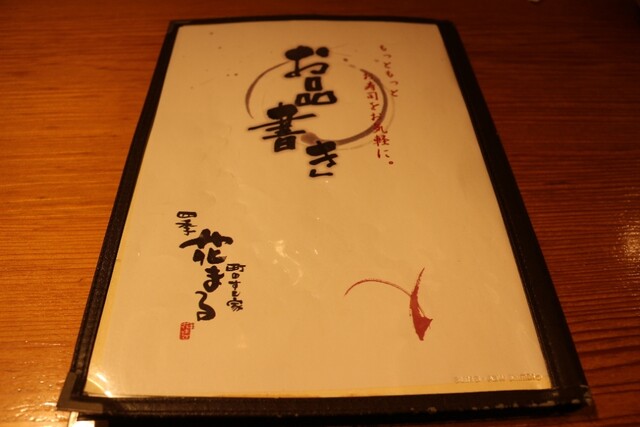 もっともっと
お寿司をお気軽に。
お品
書き
四季
花まる
町のすし家